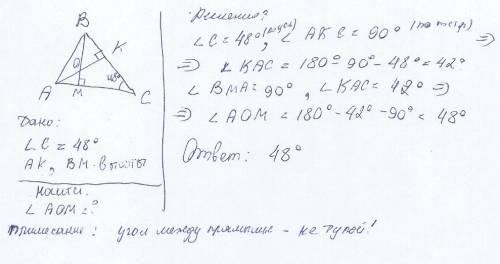 B
K
O
48°
A
M
C
Дано:
∠C = 48°
AK, BM - высоты
Найти:
∠AOM = ?
Решение:
∠C = 48°, ∠AKC = 90° ⇒
⇒ ∠KAC = 180° - 90° - 48° = 42°
∠BMA = 90°, ∠KAC = 42° ⇒
⇒ ∠AOM = 180° - 42° - 90° = 48°
Ответ: 48°
Примечание: угол между прямыми - не тупой!